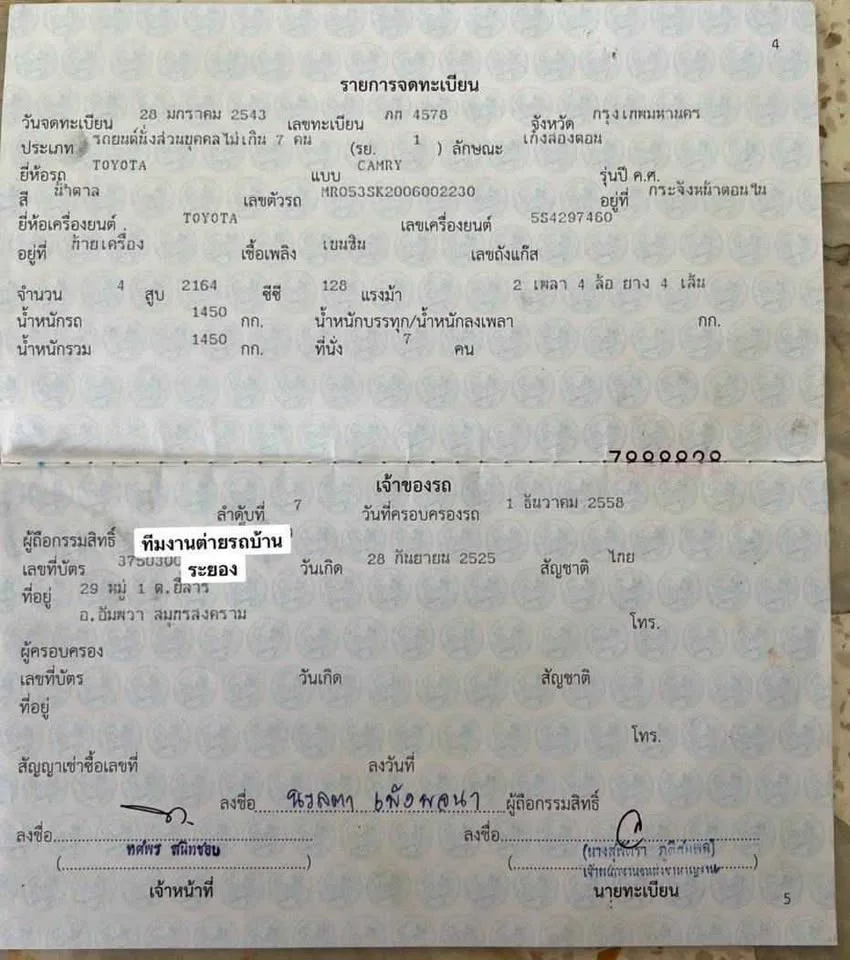 4
รายการจดทะเบียน
วันจดทะเบียน 28 มกราคม 2543 เลขทะเบียน ภก 4578 จังหวัด กรุงเทพมหานคร
ประเภท รถยนต์นั่งส่วนบุคคลไม่เกิน 7 คน (รย. 1 ) ลักษณะ เก๋งสองตอน
ยี่ห้อรถ TOYOTA แบบ CAMRY รุ่นปี ค.ศ.
สี น้ำตาล เลขตัวรถ MR053SK2006002230 อยู่ที่ กระจังหน้าตอนใน
ยี่ห้อเครื่องยนต์ TOYOTA เลขเครื่องยนต์ 5S4297460
อยู่ที่ ท้ายเครื่อง เชื้อเพลิง เบนซิน เลขถังแก๊ส
จำนวน 4 สูบ 2164 ซีซี 128 แรงม้า 2 เพลา 4 ล้อ ยาง 4 เส้น
น้ำหนักรถ 1450 กก. น้ำหนักบรรทุก/น้ำหนักลงเพลา กก.
น้ำหนักรวม 1450 กก. ที่นั่ง 7 คน
เจ้าของรถ
ลำดับที่ 7 วันที่ครอบครองรถ 1 ธันวาคม 2558
ผู้ถือกรรมสิทธิ์ ทีมงานต่ายรถบ้าน
ระยอง
เลขที่บัตร 3750300 วันเกิด 28 กันยายน 2525 สัญชาติ ไทย
ที่อยู่ 29 หมู่ 1 ต.ยี่สาร
อ.อัมพวา สมุทรสงคราม โทร.
ผู้ครอบครอง
เลขที่บัตร วันเกิด สัญชาติ
ที่อยู่
โทร.
สัญญาเช่าซื้อเลขที่ ลงวันที่
ลงชื่อ ผู้ถือกรรมสิทธิ์
ลงชื่อ ลงชื่อ
ทศพร สนิทชอบ
เจ้าหน้าที่ นายทะเบียน
5